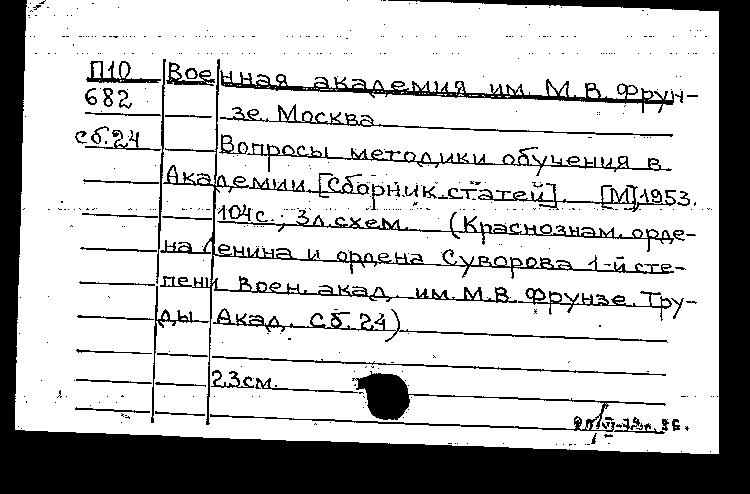 П10 Военная академия им. М.В. Фрун-
682 зе. Москва.
сб.24 Вопросы методики обучения в
Академии. [Сборник статей]. [М],1953.
104с.; 3л.схем. (Краснознам. орде-
на Ленина и ордена Суворова 1-й сте-
пени Воен. акад. им. М.В. Фрунзе. Тру-
ды Акад. Сб. 24).
23см.